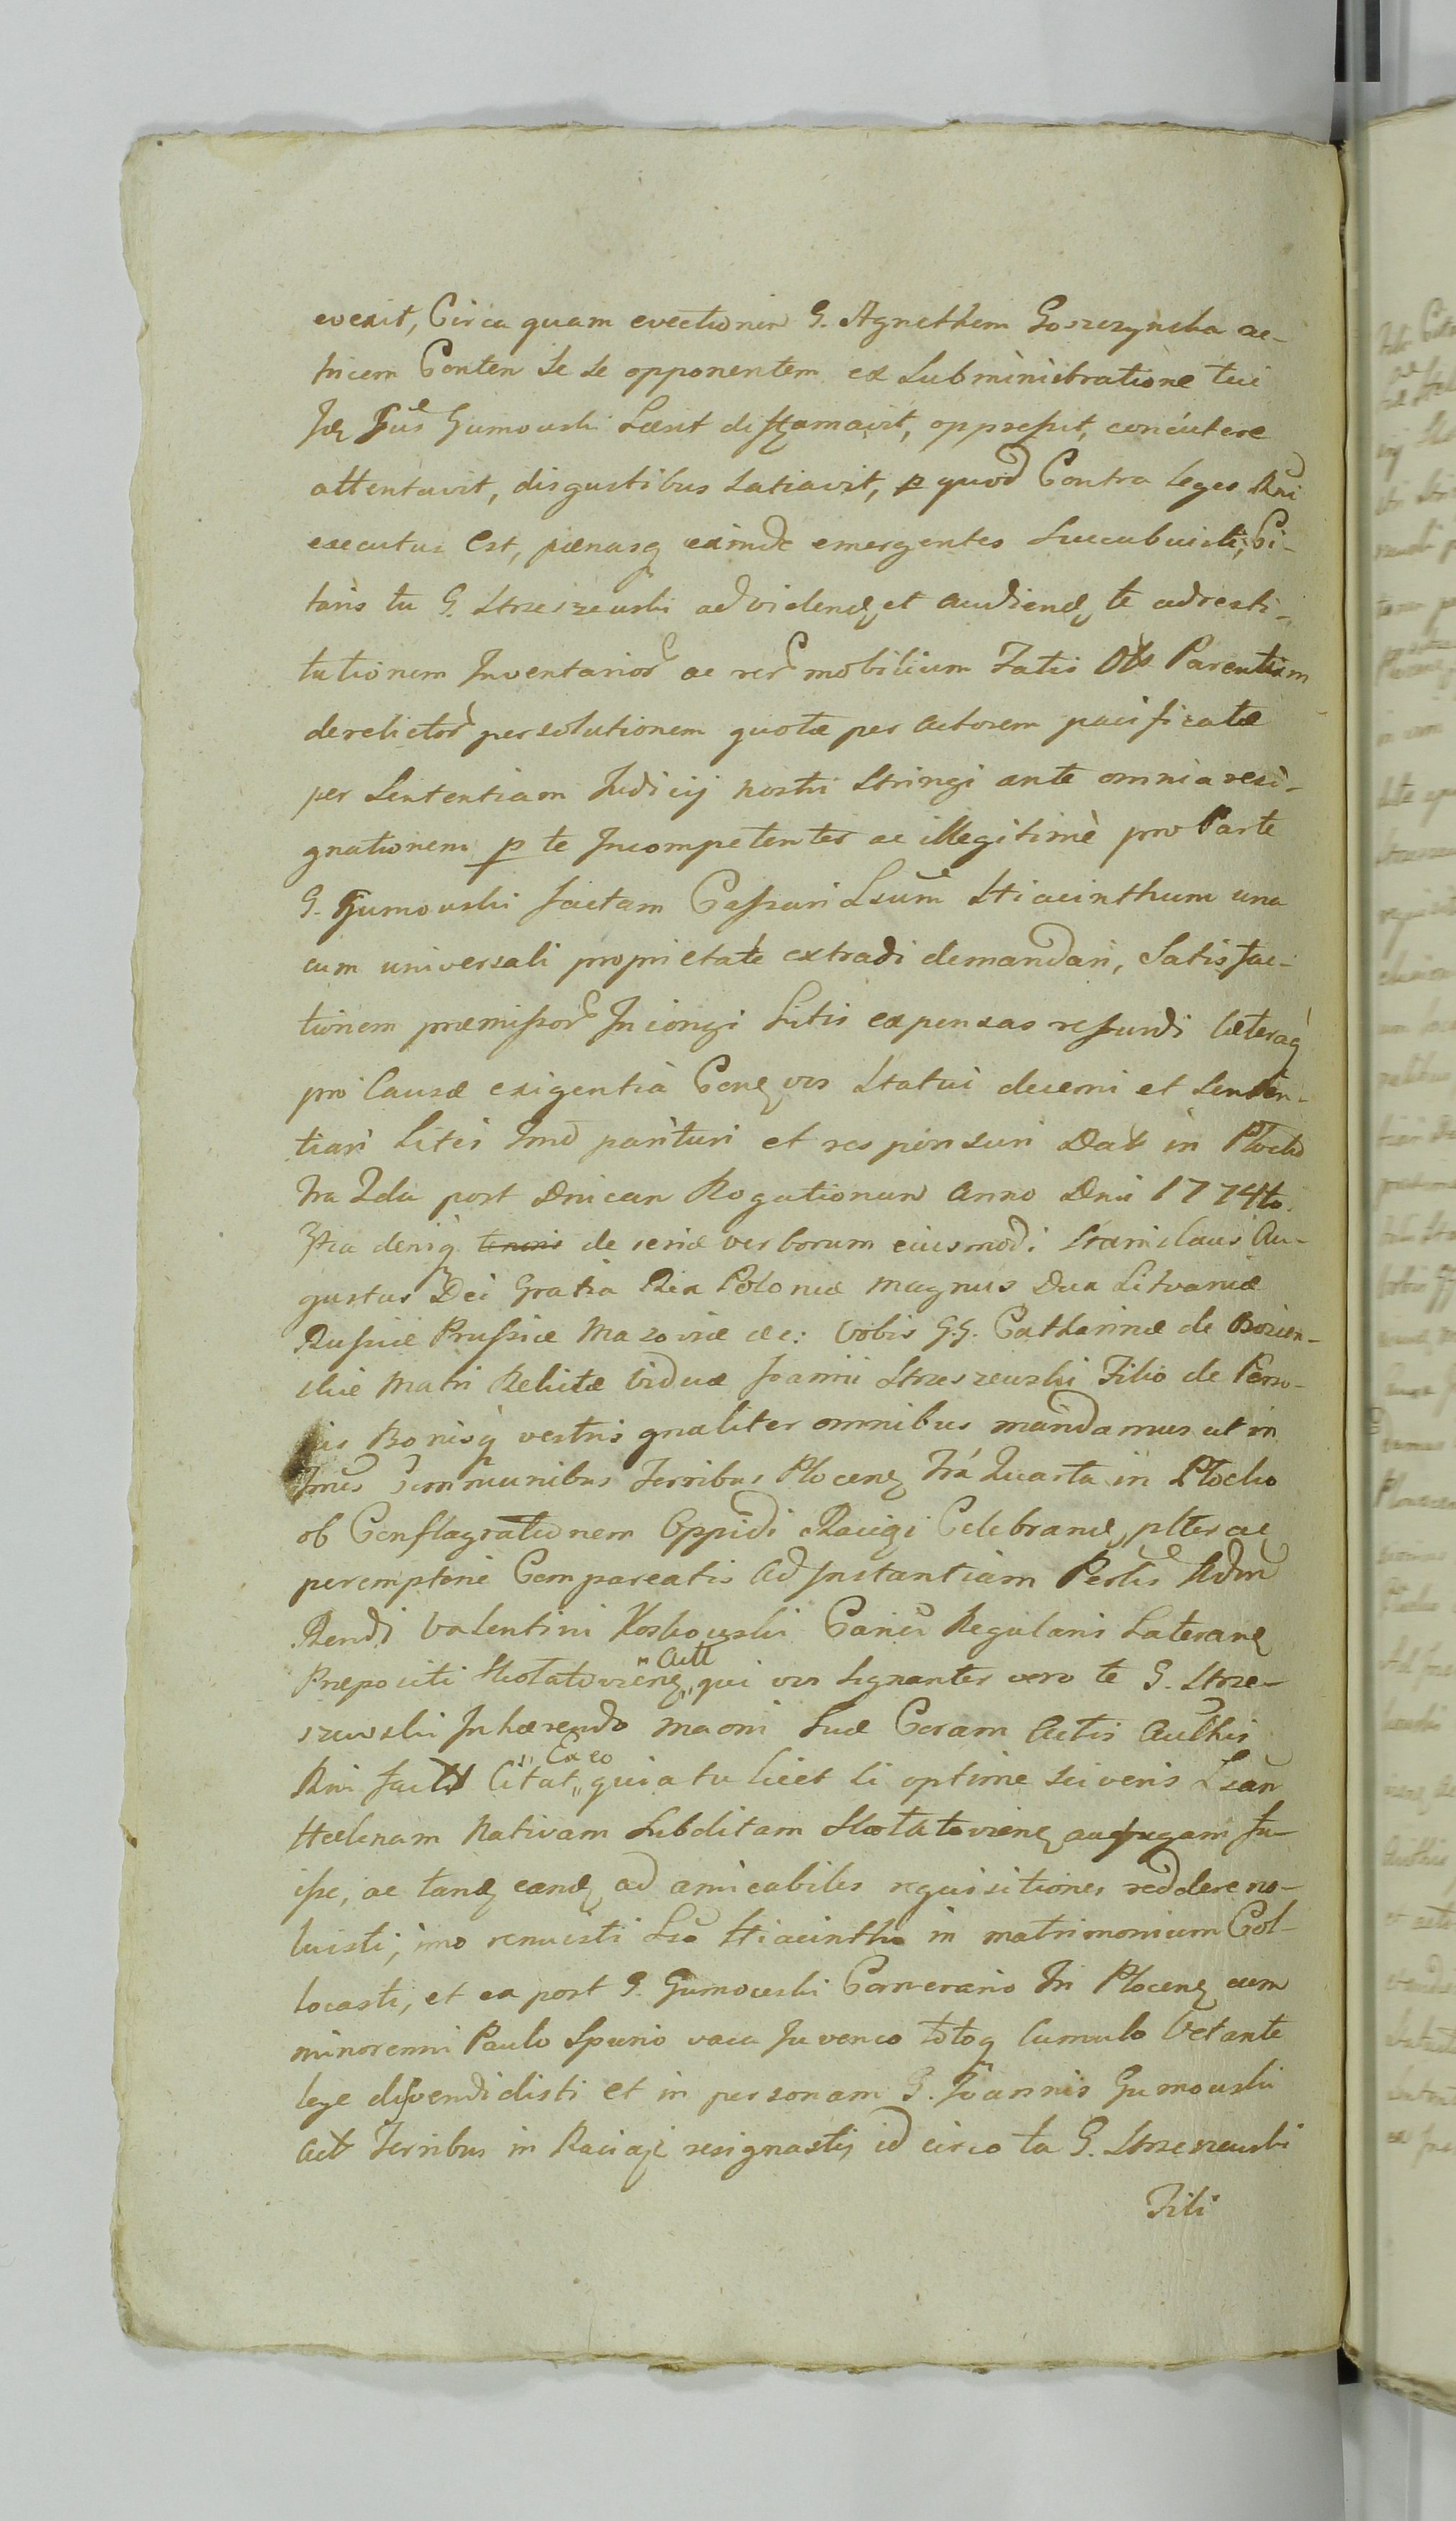 evexit, Circa quam evectionem G. Agnethem Goszczynska ac-
tricem Conten se se opponentem ex subministratione tui
Gumowski Læsit diffamavit, oppressit, concutere
attentavit, disgustibus satiavit, p quod Contra leges Rni
executus est, pænasq exinde emergentes succubuisti, Ci-
taris tu G. Strzeszewski ad videnđ et audienđ te ad resti-
tutionem Inventarior ac rer mobilium Fatis Parentum
derelictor persolutionem quotæ per actorem pacificatæ
per sententiam Judicij nostri stringi ante omnia resi-
gnationem p te Incompetenter ac illegitimè pro Parte
G. Gumowski factam Cassari Lsum Hiacinthum una
cum universali proprietate extradi demandari, satisfac-
tionem præmissor Injongi Litis expensas refundi Cæteraq
pro Causæ exigentia Conđ vos statui decerni et senten-
tiari Litei Tmd parituri et responsuri Dat in Plocko
Fra 2da post Dnican Rogationum Anno Dni 1774to.
3tia deniq de serie verborum eiusmodi Stanislaus Au-
gustus Dei Gratia Rex Poloniæ Magnus Dux Litvaniæ
Russiæ Prussiæ Mazoviæ etc: Vobis G.G. Catharinæ de Bozien-
skie Matri Relictæ Viduæ Joanni Strzeszewski Filio de Perso-
nis Bonisq vestris gnaliter omnibus mandamus ut in
Tmis Communibus Terribus Plocenđ Fra Quarta in Plocko
ob Conflagrationem Oppidi Raciąż Celebranđ, plter ac
peremptorie Compareatis ad Instantiam Perlis Admd
Rendi Valentini Koskowski Canici Regularis Lateranđ
Præpositi Skołatoviend "Actt" qui vos signanter vero te G. Strze-
szewski Inhærendo Maoni suæ Coram Actis Authis
Rni factæ Citat "Ex eo" quia tu licet si optime sciveris Lsan
Helenam Nativam subditam Skołatoviend aufugam fu-
isse, ac tanđ eanđ ad amicabiles requisitiones reddere no-
luisti, imo renuisti Lso Hiacintho in matrimonium Col-
locasti, et ex post G. Gumowski Camerario Tri Plocend cum
minorenni Paulo Spurio vacca Juvenco totoq Cumulo Vetante
lege divendidisti et in personam G. Joannis Gumowski
Act Terribus in Raciąż resignasti, id circo ta G. Strzeszewski
Fili